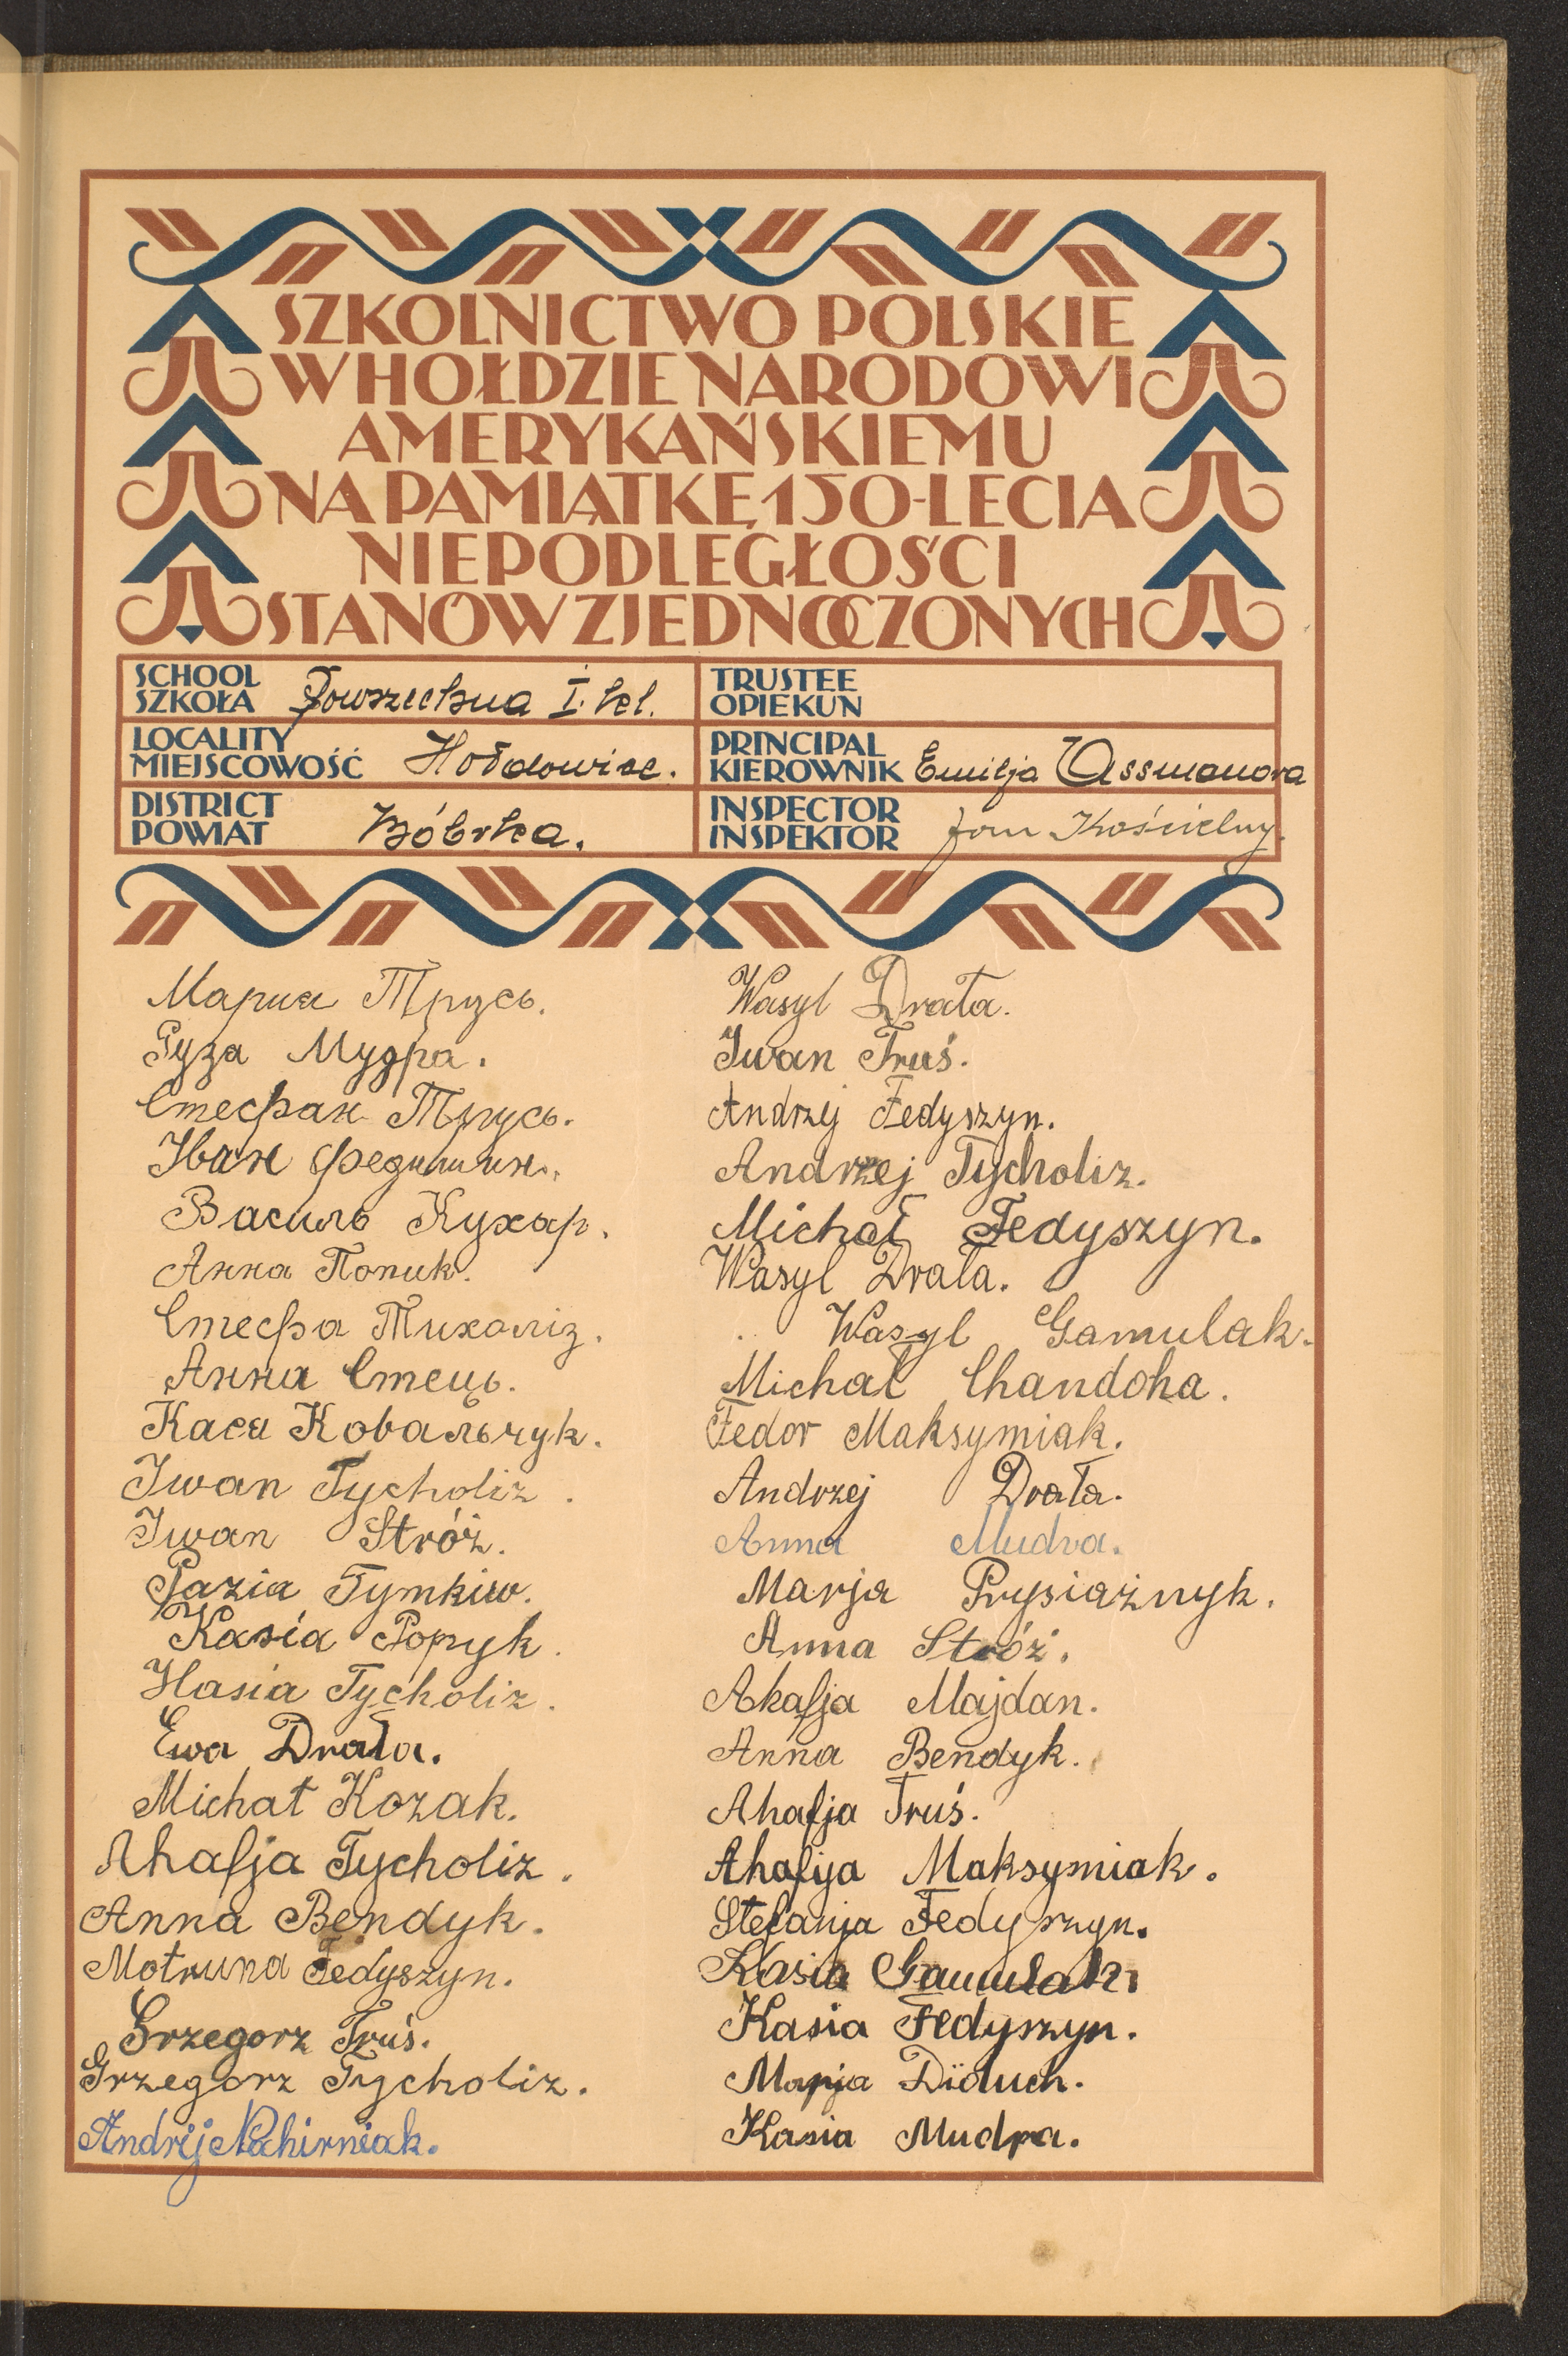 SZKOLNICTWO POLSKIE
W HOŁDZIE NARODOWI
AMERYKAŃSKIEMU
NA PAMIĄTKĘ 150-LECIA
NIEPODLEGŁOŚCI
STANÓW ZJEDNOCZONYCH
SCHOOL
SZKOŁA Powszechna I. kl.
TRUSTEE
OPIEKUN
LOCALITY
MIEJSCOWOŚĆ Hołdowice.
PRINCIPAL
KIEROWNIK Emilja Assmanowa
DISTRICT
POWIAT Bóbrka.
INSPECTOR
INSPEKTOR Jan Kościelny.
Мария Трусь.
Рузя Мудра.
Стефан Трусь.
Іван Федишин.
Василь Кухар.
Анна Попик.
Стефа Тихоліз.
Анна Стець.
Кася Ковальчук.
Iwan Tycholiz.
Iwan Stróż.
Pazia Tymkiw.
Kasia Popyk.
Hasia Tycholiz.
Ewa Drała.
Michał Kozak.
Ahafja Tycholiz.
Anna Bendyk.
Motruna Fedyszyn.
Grzegorz Truś.
Grzegorz Tycholiz.
Andrij Nahirniak.
Wasyl Drała.
Iwan Truś.
Andrzej Fedyszyn.
Andrzej Tycholiz.
Michał Fedyszyn.
Wasyl Drała.
Wasyl Gamulak.
Michał Chandoha.
Fedor Maksymiak.
Andrzej Drała.
Anna Mudra.
Marja Prysiażnyk.
Anna Stróż.
Akafja Majdan.
Anna Bendyk.
Ahafja Truś.
Ahafija Maksymiak.
Stefanja Fedyszyn.
Kasia Gamulak.
Kasia Fedyszyn.
Marja Diduch.
Kasia Mudra.